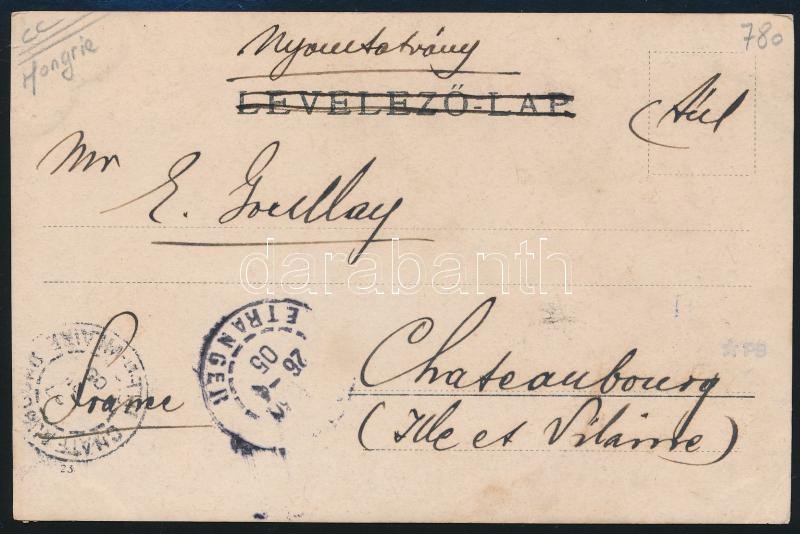 CC
Hongrie
780
Nyomtatvány
LEVELEZŐ-LAP
Mr
E. Goullay
darabanth
ETRANGER
26
05
Chateaubourg
(Ille et Vilaine)
France
23